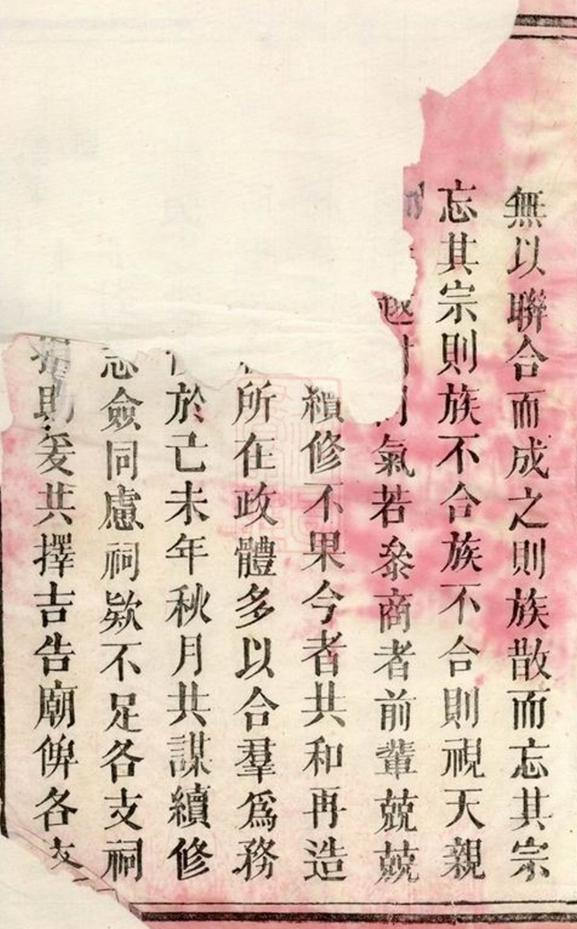 無以聯合而成之則族散而忘其宗
忘其宗則族不合族不合則視天親
越同氣若叅商者前輩兢兢
續修不果今者共和再造
所在政體多以合羣爲務
於己未年秋月共謀續修
僉同慮祠欵不足各支祠
助爰共擇吉告廟俾各支